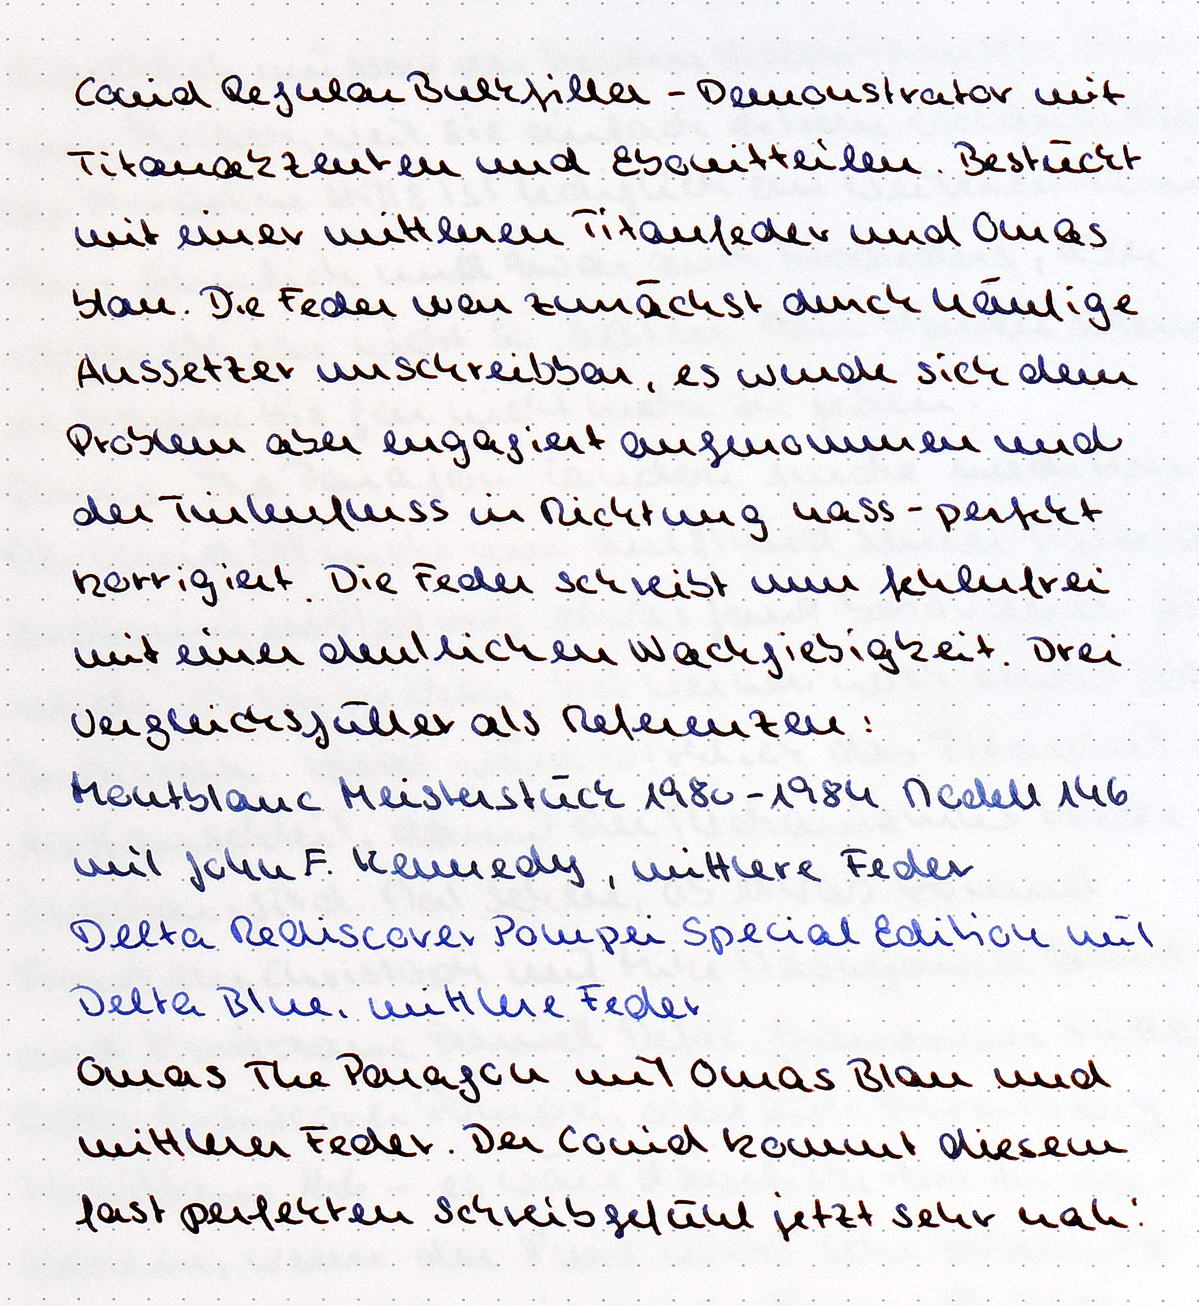 Conid Regular Bulkfiller - Demonstrator mit
Titanakzenten und Ebonitteilen. Bestückt
mit einer mittleren Titanfeder und Omas
blau. Die Feder war zunächst durch häufige
Aussetzer unschreibbar, es wurde sich dem
Problem aber engagiert angenommen und
der Tintenfluss in Richtung nass-perfekt
korrigiert. Die Feder schreibt nun fehlerfrei
mit einer deutlichen Nachgiebigkeit. Drei
Vergleichsfüller als Referenzen:
Montblanc Meisterstück 1980-1984 Modell 146
mit John F. Kennedy, mittlere Feder
Delta Rediscover Pompei Special Edition mit
Delta Blue, mittlere Feder
Omas The Paragon mit Omas Blau und
mittlerer Feder. Der Conid kommt diesem
fast perfekten Schreibgefühl jetzt sehr nah!